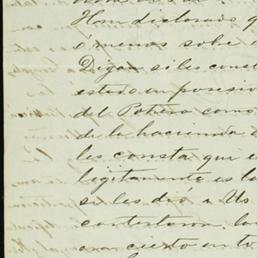 Han declarado q
ó menos sobre e
Digan si les const
estado en posesion
del Potrero como
de la hacienda d
les consta que e
legitamente es la
se les dió a Us
contestaron: los
era cierto en to